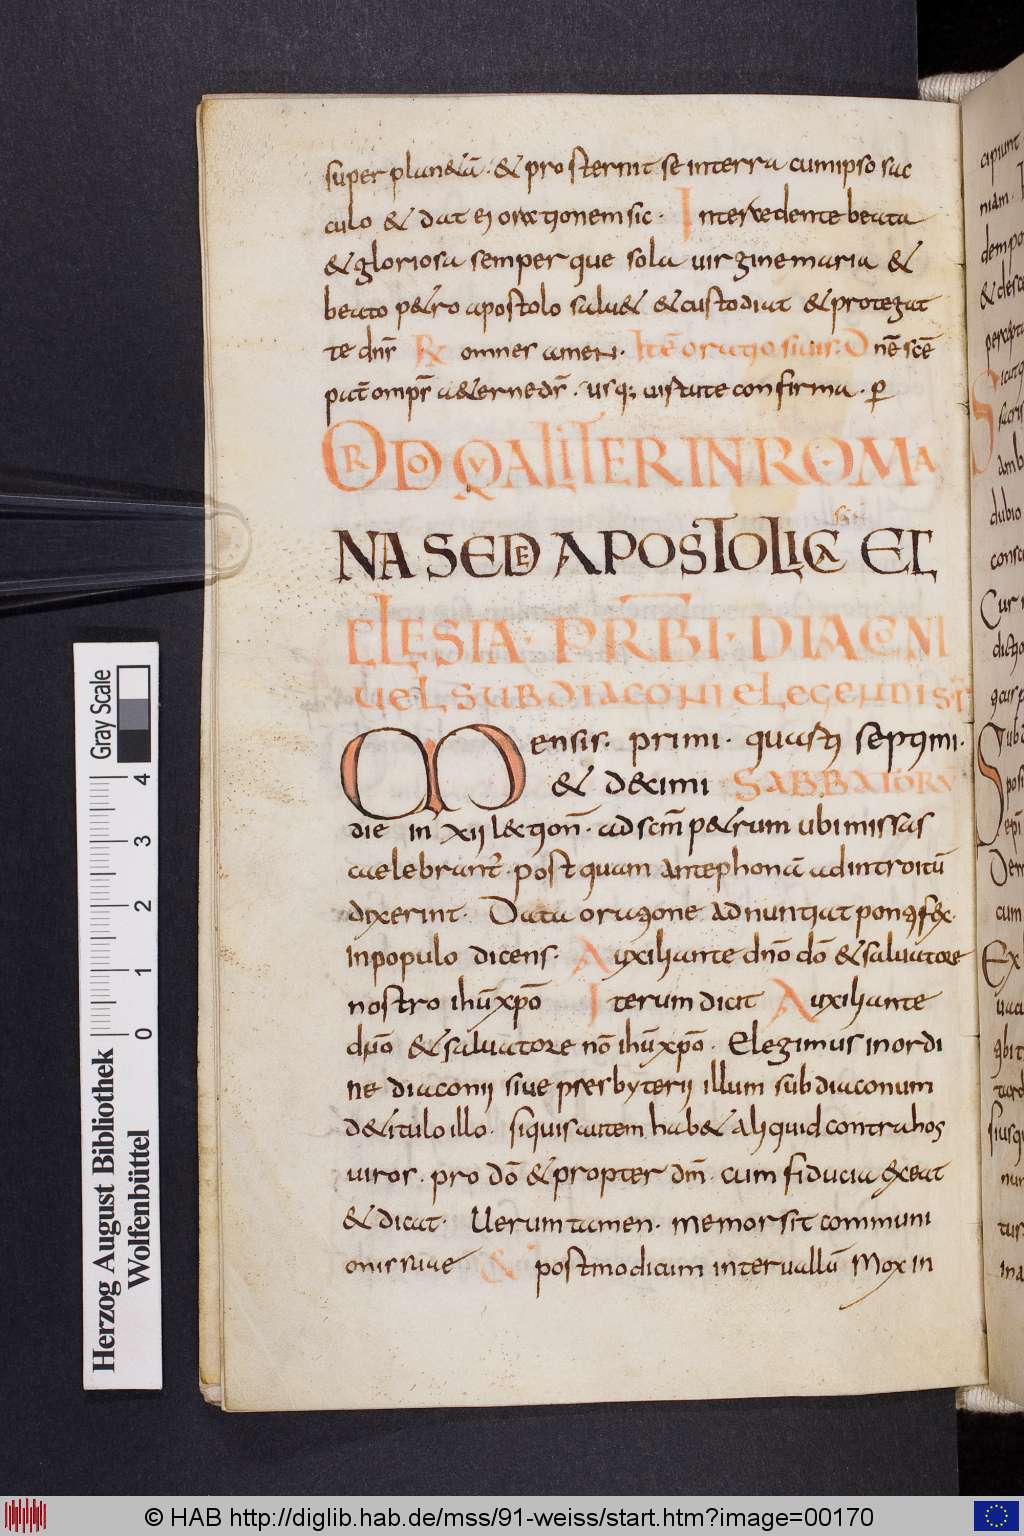 super planetā · & prosternit se in terra cum ipso sac
culo & dat ei orationem sic · Intercedente beata
& gloriosa semper que sola uirgine maria &
beato petro apostolo saluet & custodiat & protegat
te dnr̄ R omner amen · Itē oratio suiis · Dnē scē
pat̄ omps̄ aeterne ds̄ · usq; uistute confirma · p
ORDO QVALITER IN ROMA
NA SEDE APOSTOLICA ET
CLESIA · PRB̄I · DIACONI
UEL SUBDIACONI ELEGENDI S̄T
Mensis · primi · quarti septimi ·
& decimi SABBATORŪ
die in xij lectioñ · ad scm̄ petrum ubi missas
caelebrant̄ · postquam antephonā ad introitū
dixerint · Data oratione adnuntiat pontifex ·
In populo dicens · Auxiliante dn̄o dō & saluatore
nostro ihū xp̄o Iterum dicit Auxiliante
dn̄o & saluatore nō ihū xp̄o · Elegimus in ordi
ne diaconij siue presbyterij illum subdiaconum
de titulo illo · si quis autem habet aliquid contra hos
uiros · pro dō & propter dm̄ · cum fiducia exeat
& dicat · Uerumtamen · memor sit communi
onis suae & post modicum interuallū Mox in
capiunt
niam ·
& desc
ambi
dubio
consc
Cur
cum
Ex
tur
ina
Herzog August Bibliothek
Wolfenbüttel
Gray Scale
0 1 2 3 4
© HAB http://diglib.hab.de/mss/91-weiss/start.htm?image=00170